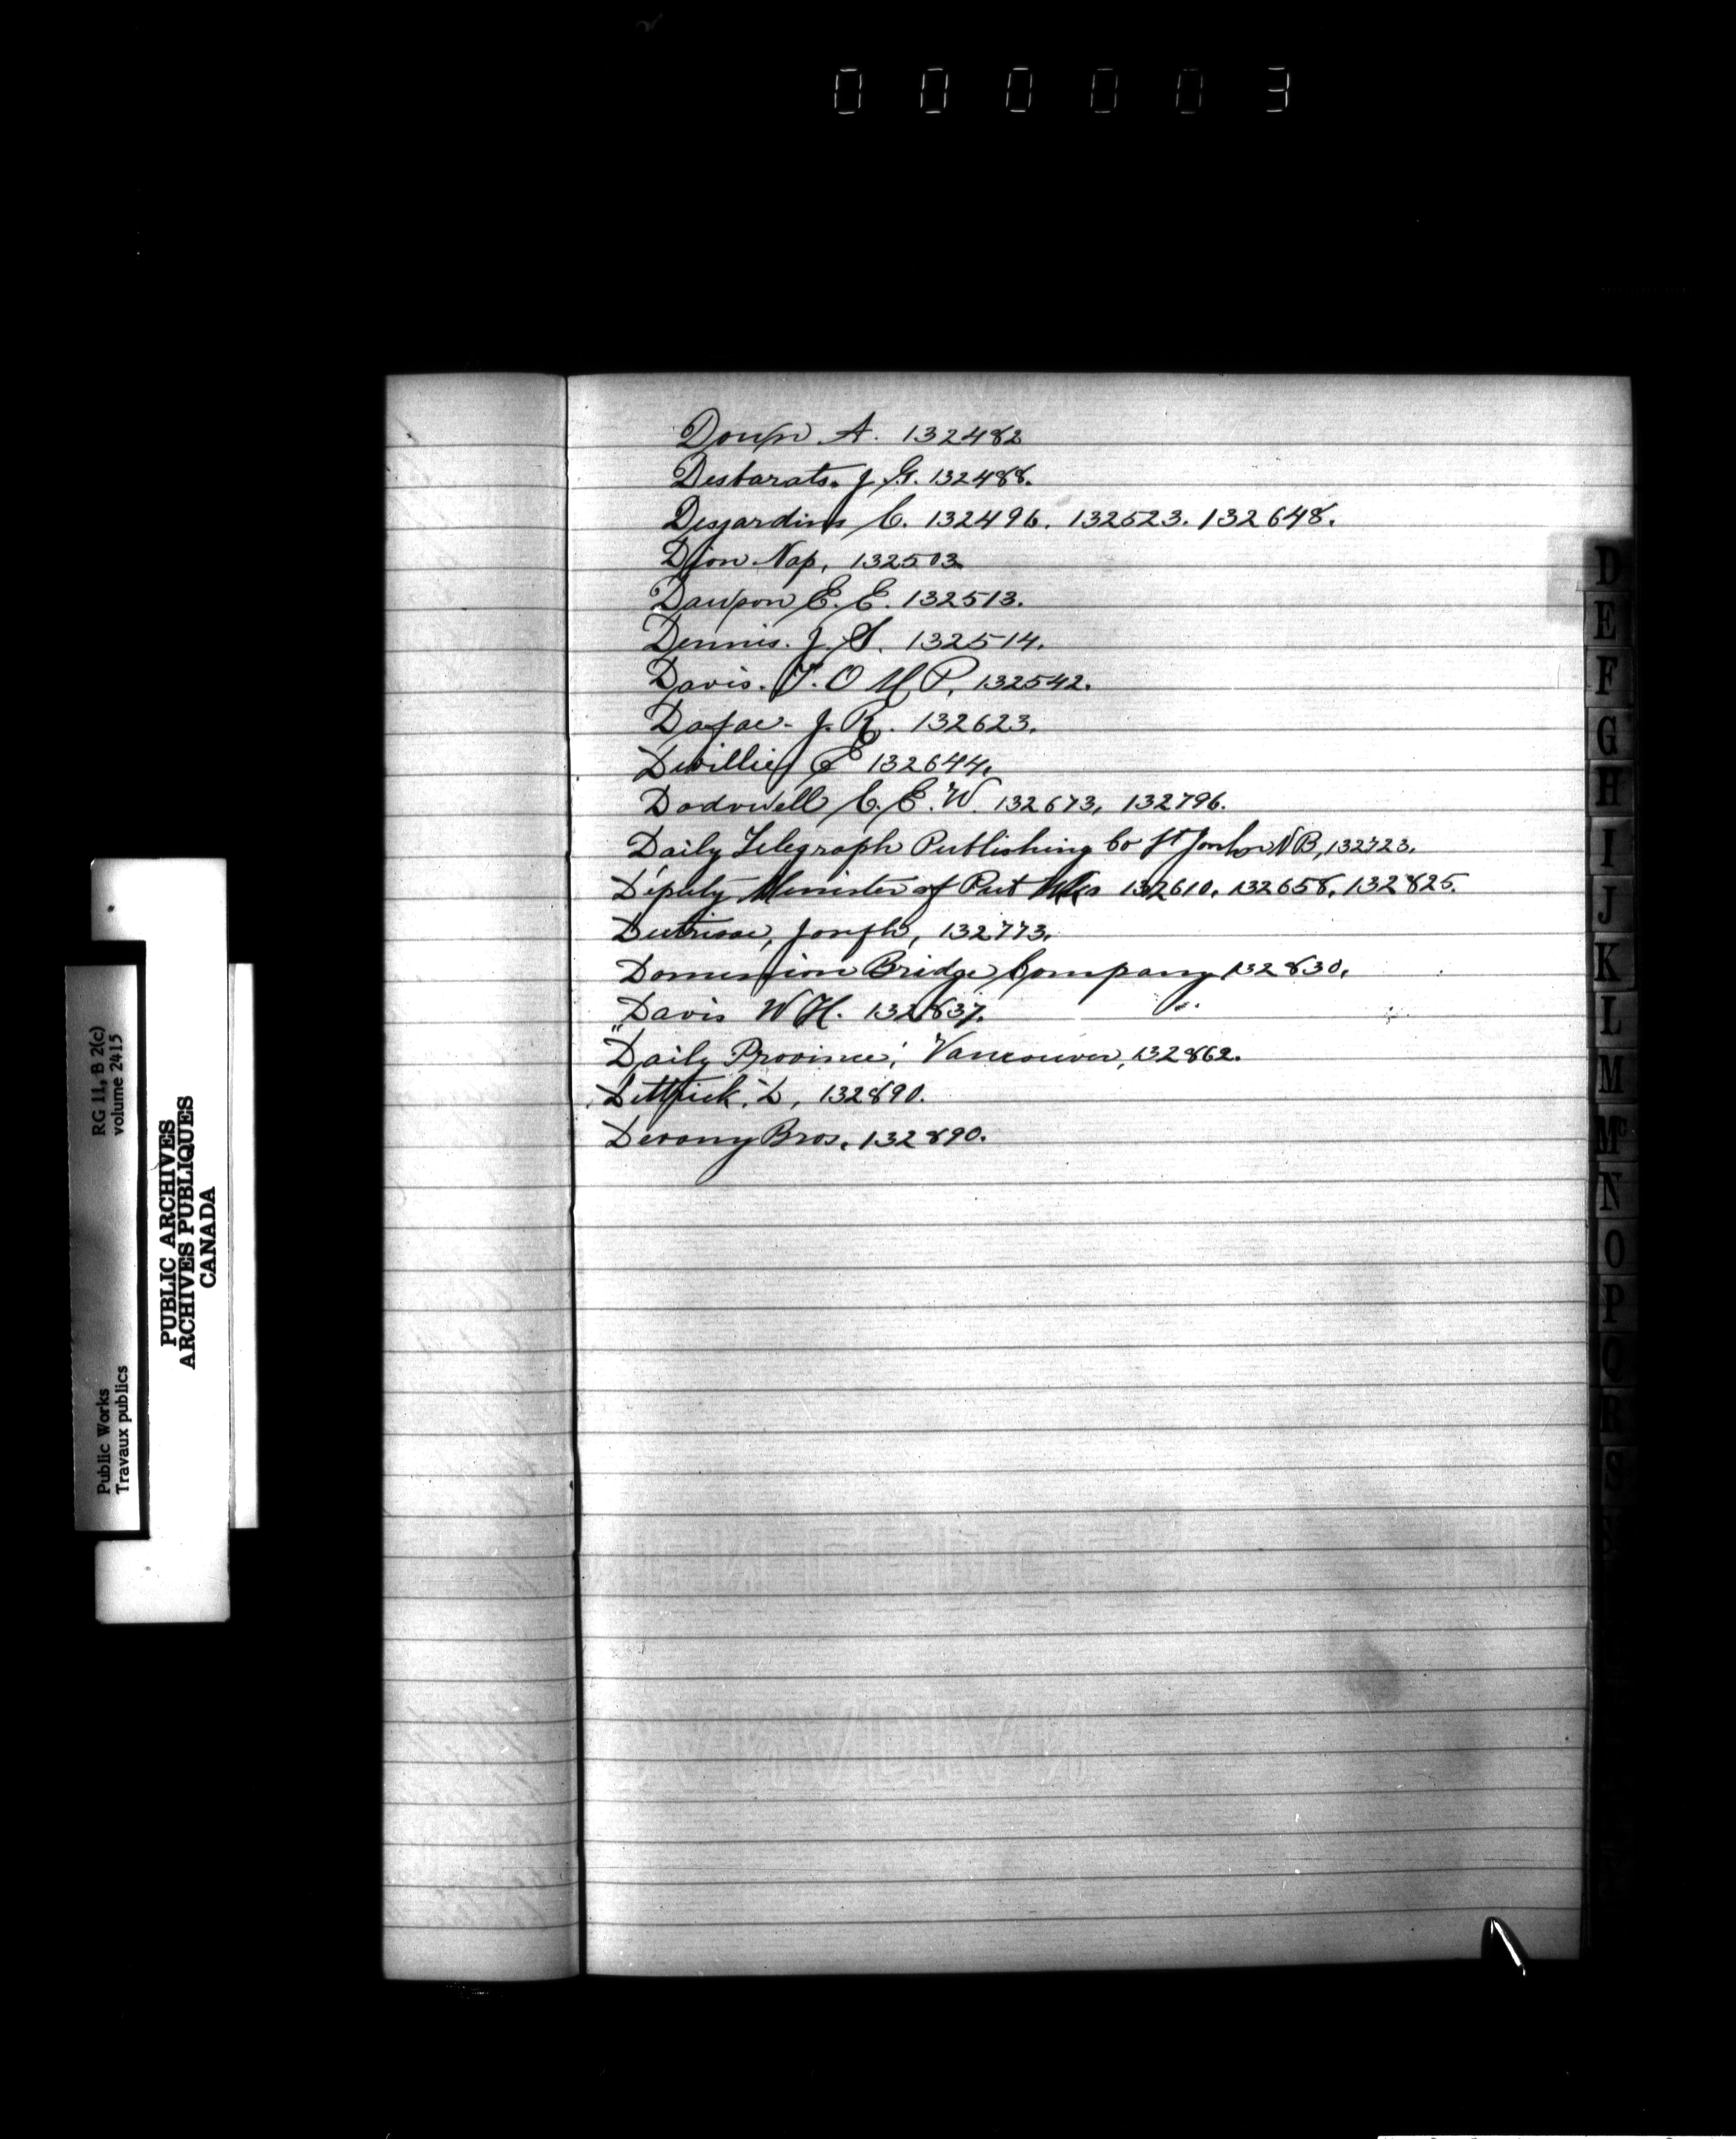 000003
Doupe A. 132482
Desbarats. J. G. 132488.
Desjardins C. 132496. 132523. 132648.
Dion Nap, 132503.
Dawson E. E. 132513.
Dennis. J. S. 132514.
Davis. T. O M P. 132542.
Dafoe. J. R. 132623.
E 132644.
Dodwell C. E. W. 132673, 132796.
Daily Telegraph Publishing Co St John NB, 132723.
Deputy Minister of Pub Wks 132610. 132658. 132825.
Joseph, 132773.
Dominion Bridge Company 132830.
Davis W H. 132837.
"Daily Province," Vancouver, 132862.
Dettrick, D, 132890.
Devony Bros. 132890.
D
E
F
G
H
I
J
K
L
M
Mc
N
O
P
Q
R
S
RG 11, B 2(c)
volume 2415
Public Works
Travaux publics
PUBLIC ARCHIVES
ARCHIVES PUBLIQUES
CANADA